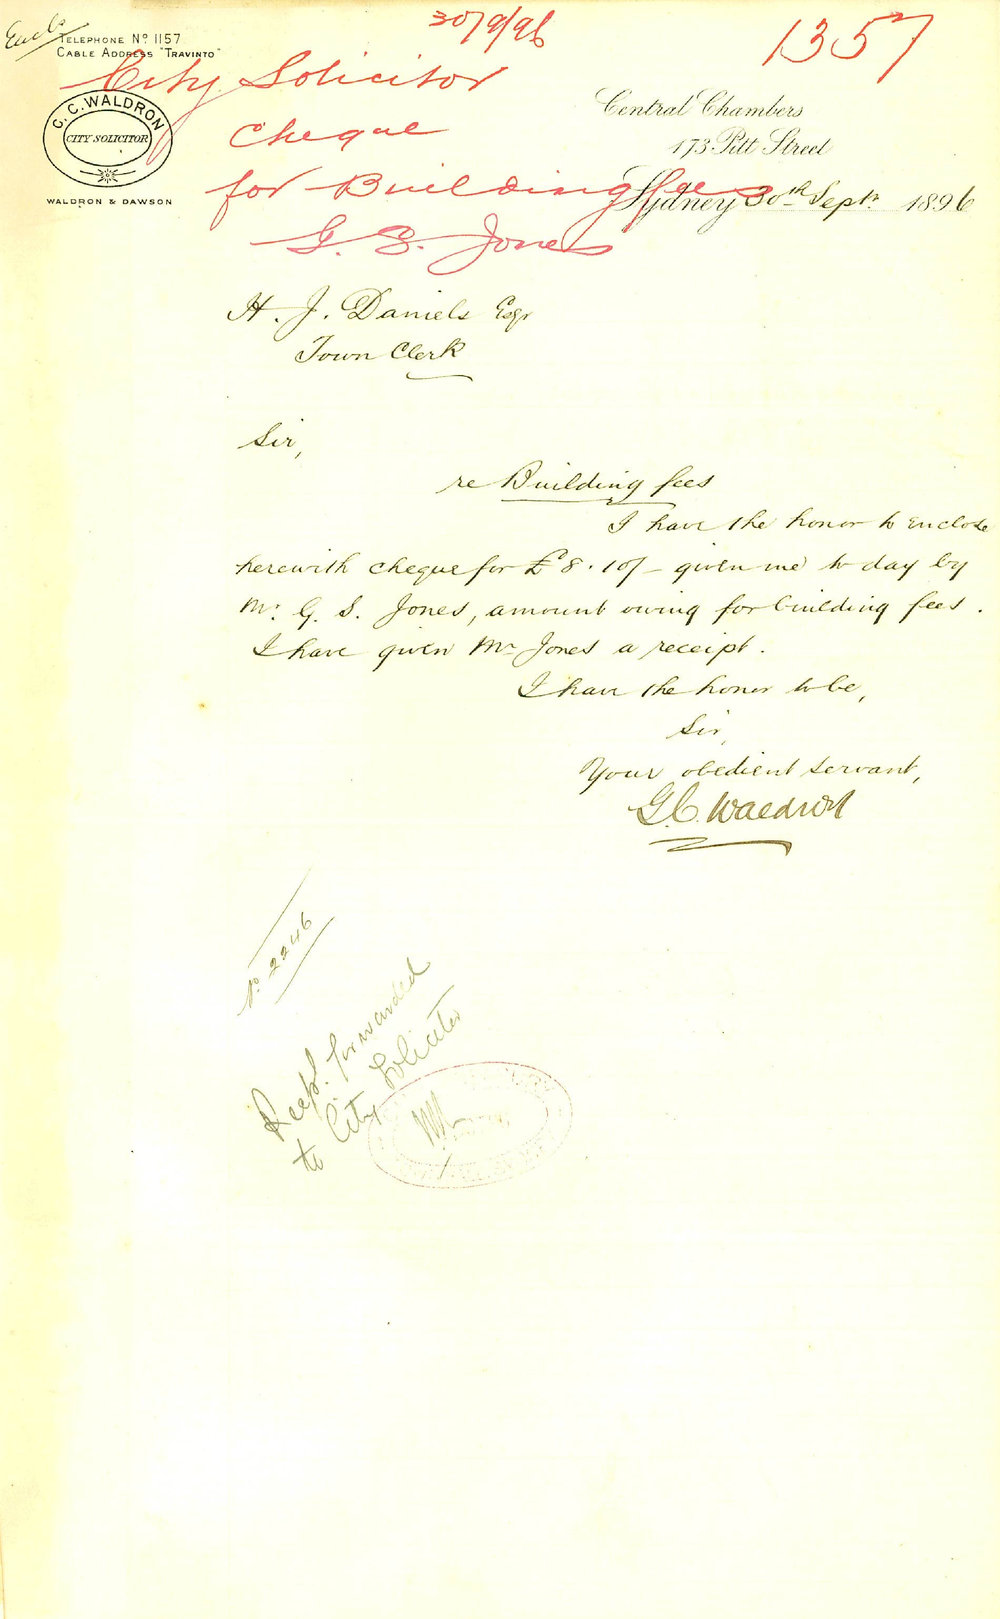 Encl.
TELEPHONE Nº 1157
CABLE ADDRESS "TRAVINTO"
30/9/96
1357
City Solicitor
Cheque
for Building fees
G. S. Jones
G. C. WALDRON
CITY SOLICITOR
WALDRON & DAWSON
Central Chambers
173 Pitt Street
Sydney 30th Septr 1896
H. J. Daniels Esqr
Town Clerk
Sir,
re Building fees
I have the honor to enclose
herewith cheque for £8.10/- given me to day by
Mr. G. S. Jones, amount owing for building fees.
I have given Mr Jones a receipt.
I have the honor to be,
Sir,
Your obedient servant,
G. C. Waldron
No. 2246
Recpt. forwarded
to City Solicitor